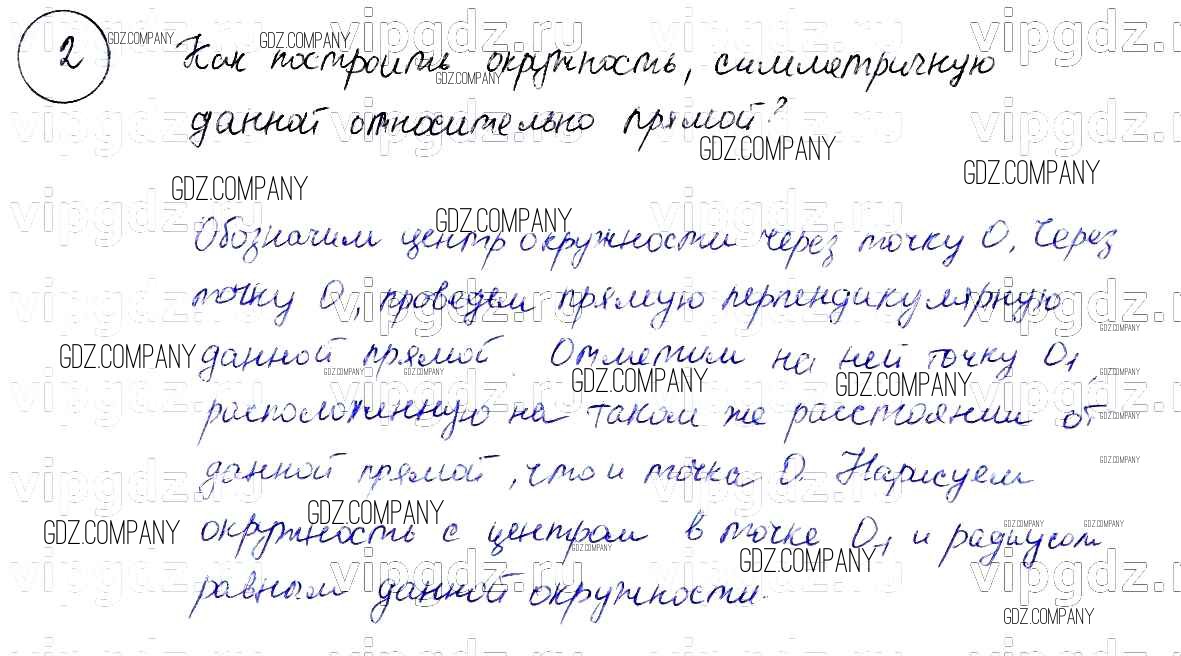 2 Как построить окружность, симметричную
данной относительно прямой?
Обозначим центр окружности через точку O. Через
точку O, проведем прямую перпендикулярную
данной прямой. Отметим на ней точку O1,
расположенную на таком же расстоянии от
данной прямой, что и точка O. Нарисуем
окружность с центром в точке O1 и радиусом
равным данной окружности.
vipgdz.ru
GDZ.COMPANY